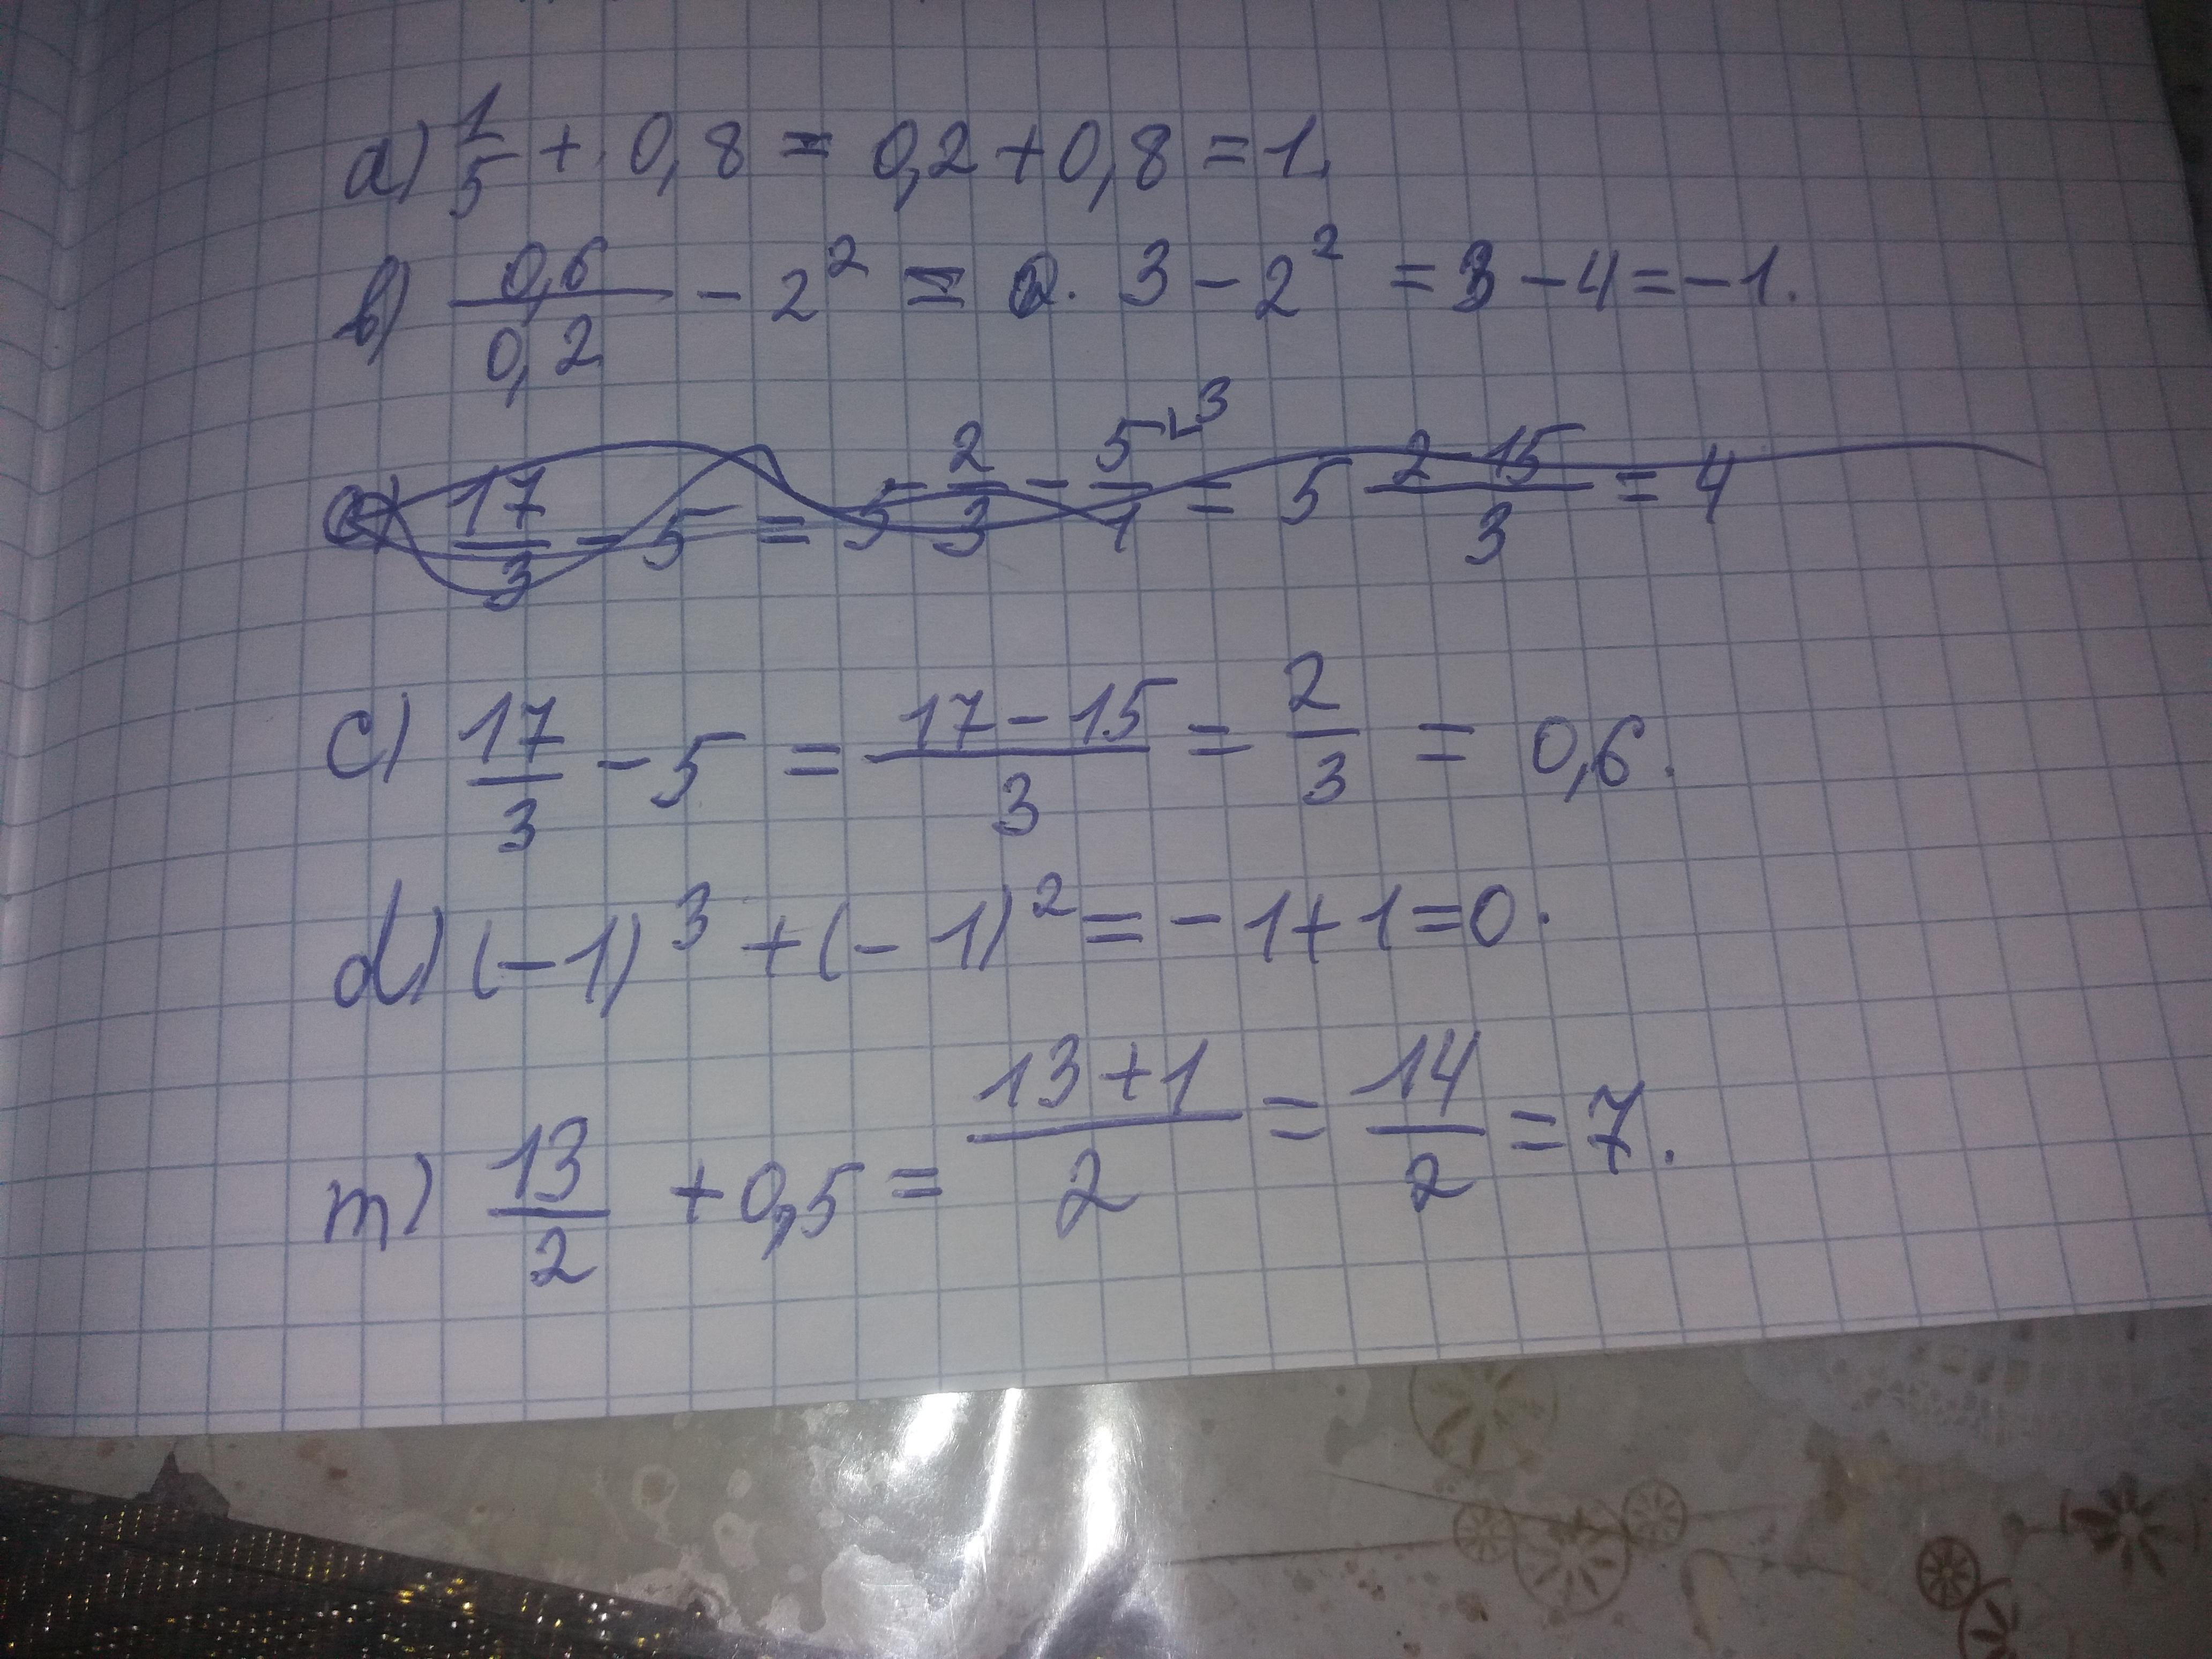 a) 1/5 + 0,8 = 0,2 + 0,8 = 1.
b) 0,6/0,2 - 2² = 3 - 2² = 3 - 4 = -1.
17/3 - 5 = 5 2/3 - 5/1 ⌞3 = 5 2-15/3 = 4
c) 17/3 - 5 = 17-15/3 = 2/3 = 0,6.
d) (-1)³ + (-1)² = -1+1=0.
m) 13/2 + 0,5 = 13+1/2 = 14/2 = 7.